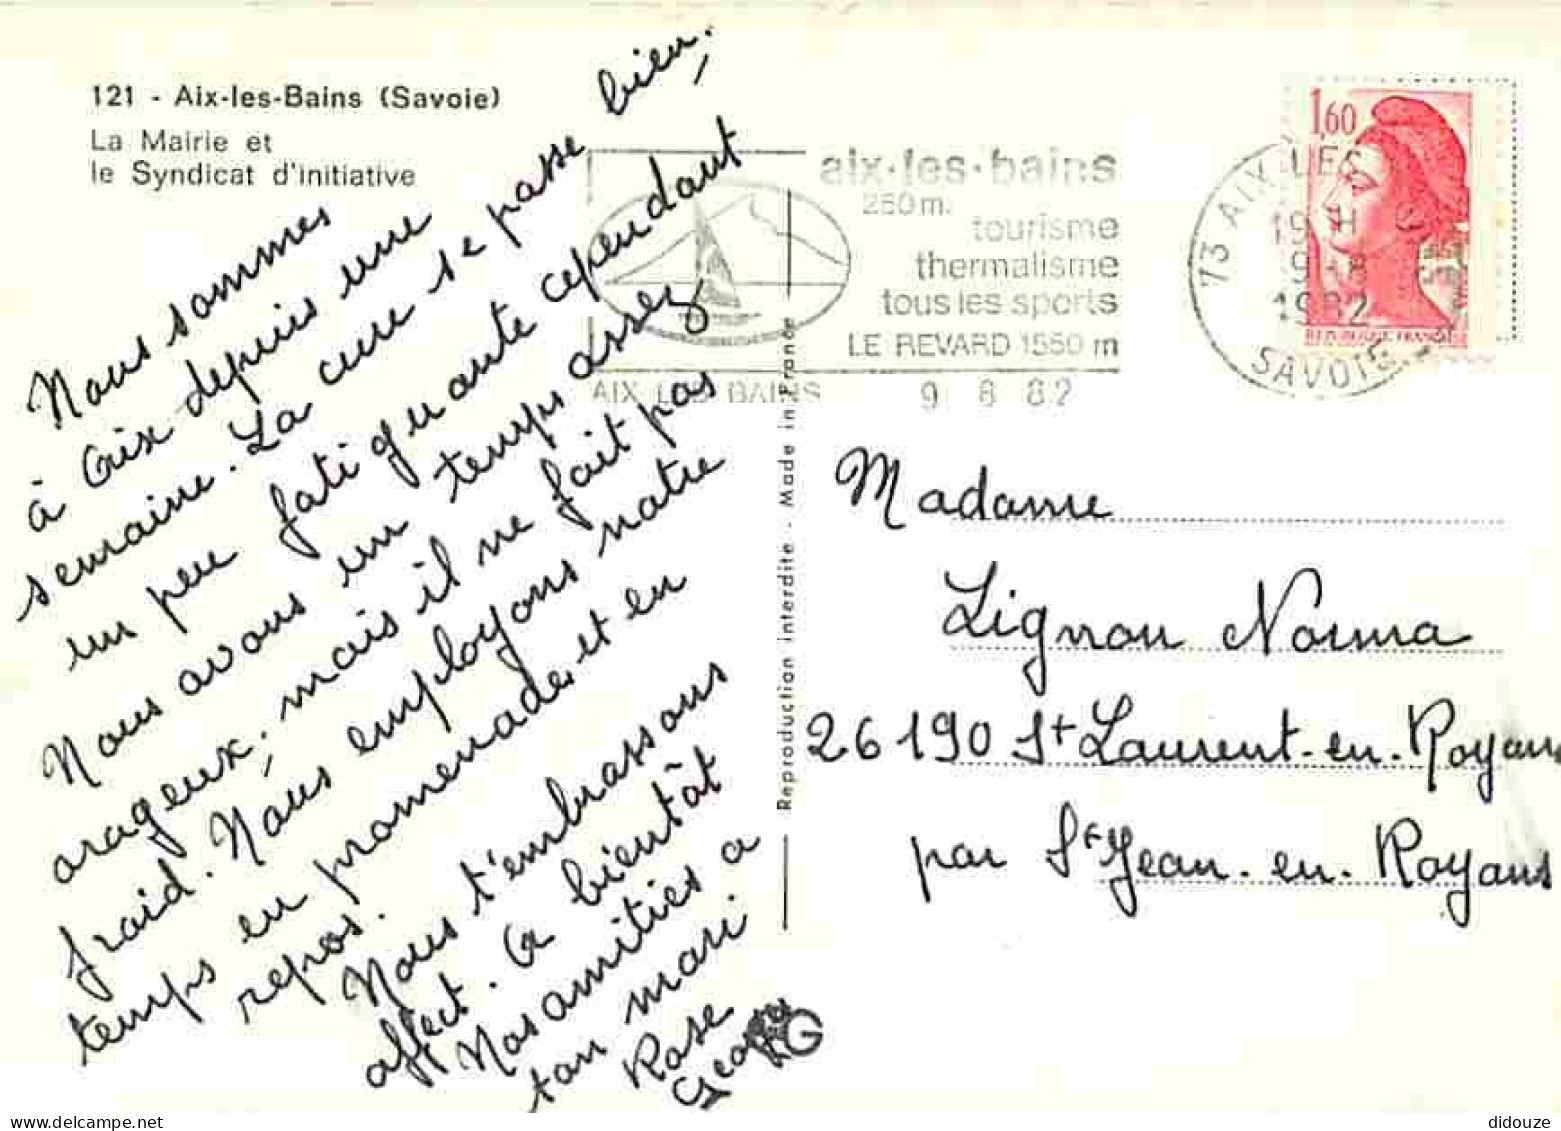 121 - Aix-les-Bains (Savoie)
La Mairie et
le Syndicat d'initiative
Nous sommes
à Aix depuis une
semaine. La cure se passe bien,
un peu fatiguante cependant
Nous avons un temps assez
orageux, mais il ne fait pas
froid. Nous employons notre
temps en promenades et en
repos.
Nous t'embrassons
affect. A bientôt
Nos amitiés a
ton mari
Rose
Georges
RG
Reproduction interdite - Made in France
aix-les-bains
260 m.
tourisme
thermalisme
tous les sports
LE REVARD 1550 m
AIX LES BAINS 9 8 82
73 AIX LES
19 H
9-8
1982
SAVOIE
1,60
REPUBLIQUE FRANCAISE
Madame
Lignon Norma
26190 St Laurent-en-Royans
par St Jean-en-Royans
didouze